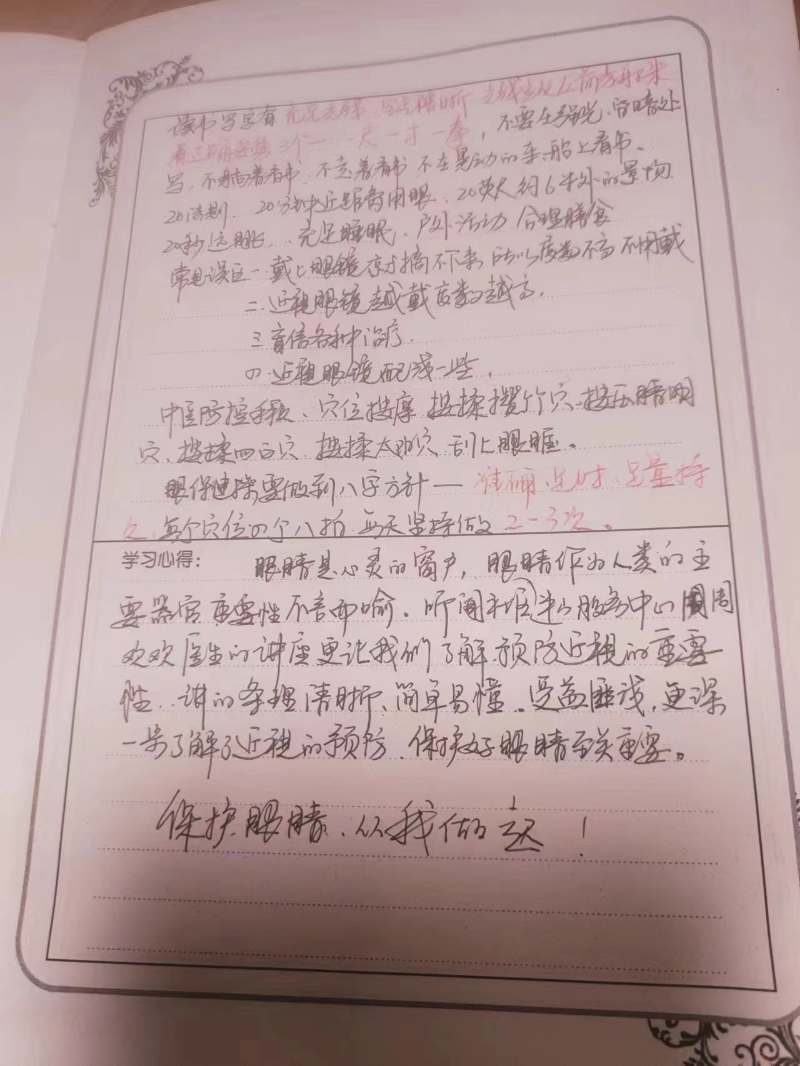 读书写字有充足光线 光线从左前方射来
三个一 一尺一寸一拳，不要在强光，昏暗处
写，不躺着看书，不走着看书 不在晃动的车船上看书。
20法则 20分钟近距离用眼，20英尺 约6米外的景物
20秒远眺，充足睡眠，户外活动 合理膳食
常见误区一.戴上眼镜就摘不下来 所以度数不高 不用戴
二.近视眼镜越戴度数越高，
三盲信各种治疗
四.近视眼镜配浅一些，
中医防控手段、穴位按摩 按揉攒竹穴 按压睛明
穴，按揉四白穴 按揉太阳穴 刮上眼眶。
眼保健操要做到八字方针— 准确、足时、足量、持
久，每个穴位四个八拍 每天坚持做2-3次。
学习心得：眼睛是心灵的窗户，眼睛作为人类的主
要器官 重要性不言而喻，听闻 服务中心 周
欢欢医生的讲座更让我们了解预防近视的重要
性，讲的条理清晰、简单易懂。受益匪浅，更深
一步了解了近视的预防，保护好眼睛至关重要。
保护眼睛、从我做起！